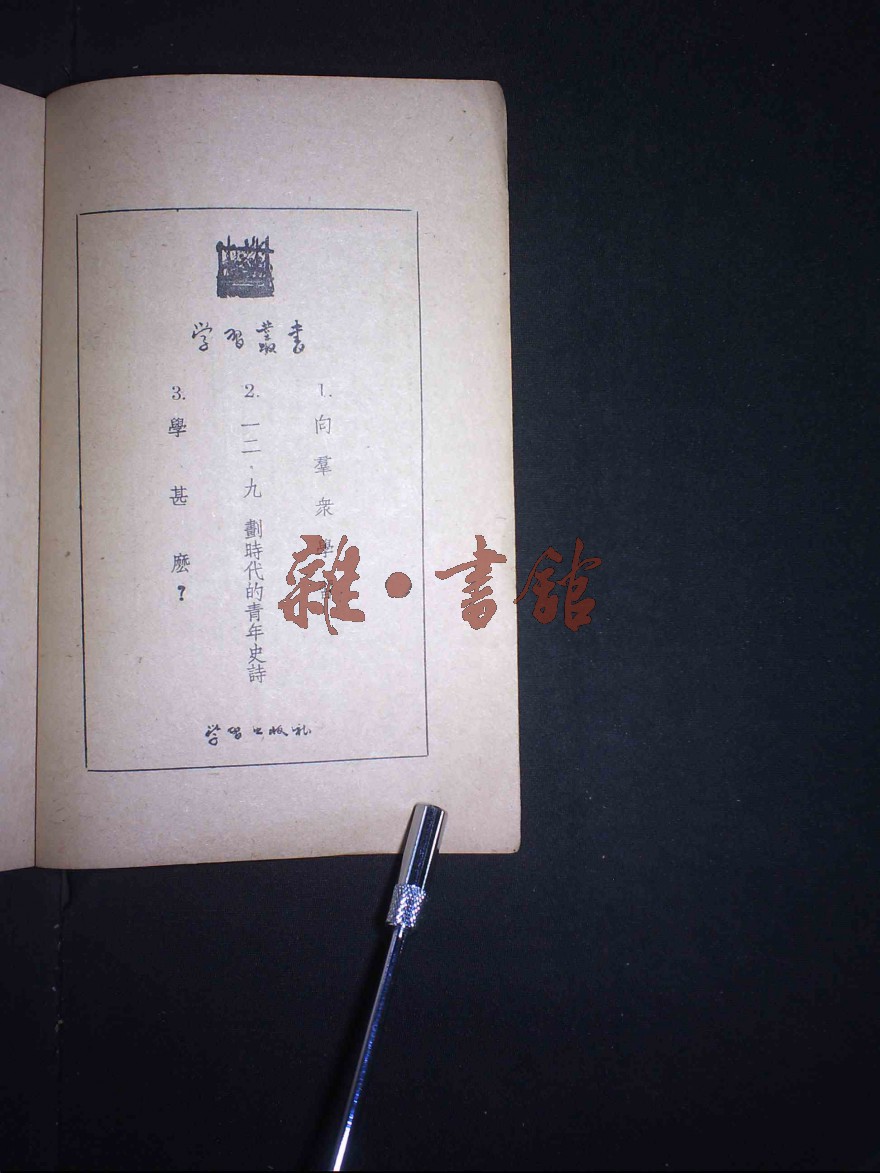 学習叢書
1. 向羣衆學
2. 一二·九 劃時代的青年史詩
3. 學甚麼?
学習出版社
雜·書館